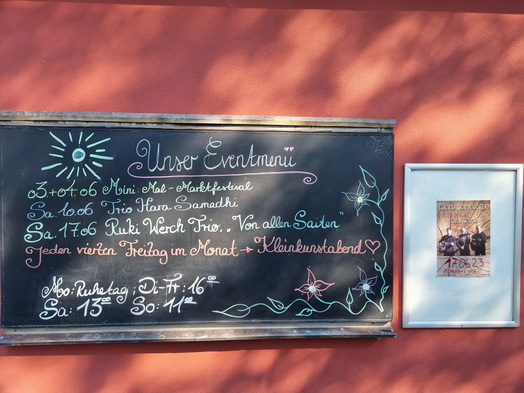 Unser Eventmenü
03+04.06 Mini-Mal-Marktfestival
Sa. 10.06 Trio Hara Samadhi
Sa. 17.06 Ruki Werch Trio „Von allen Saiten"
Jeden vierten Freitag im Monat → Kleinkunstabend ♡
Mo: Ruhetag; Di-Fr: 16⁰⁰
Sa: 13⁰⁰ So: 11⁰⁰
17.06.23